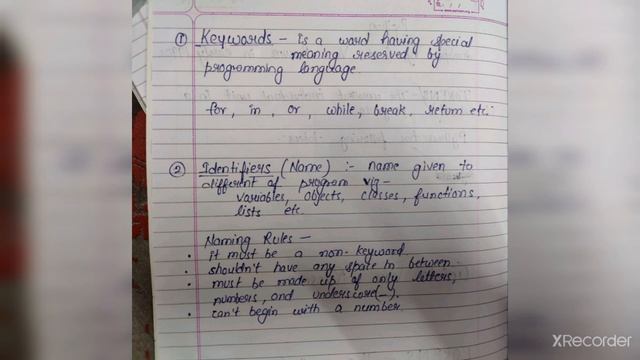 ① Keywords - is a word having special
meaning reserved by
programming language
for, in, or, while, break, return etc.
② Identifiers (Name) :- name given to
different of program viz-
variables, objects, classes, functions,
lists etc.
Naming Rules -
• it must be a non-keyword
• shouldn't have any space in between.
• must be made up of only letters,
numbers, and underscore(_).
• can't begin with a number.
XRecorder